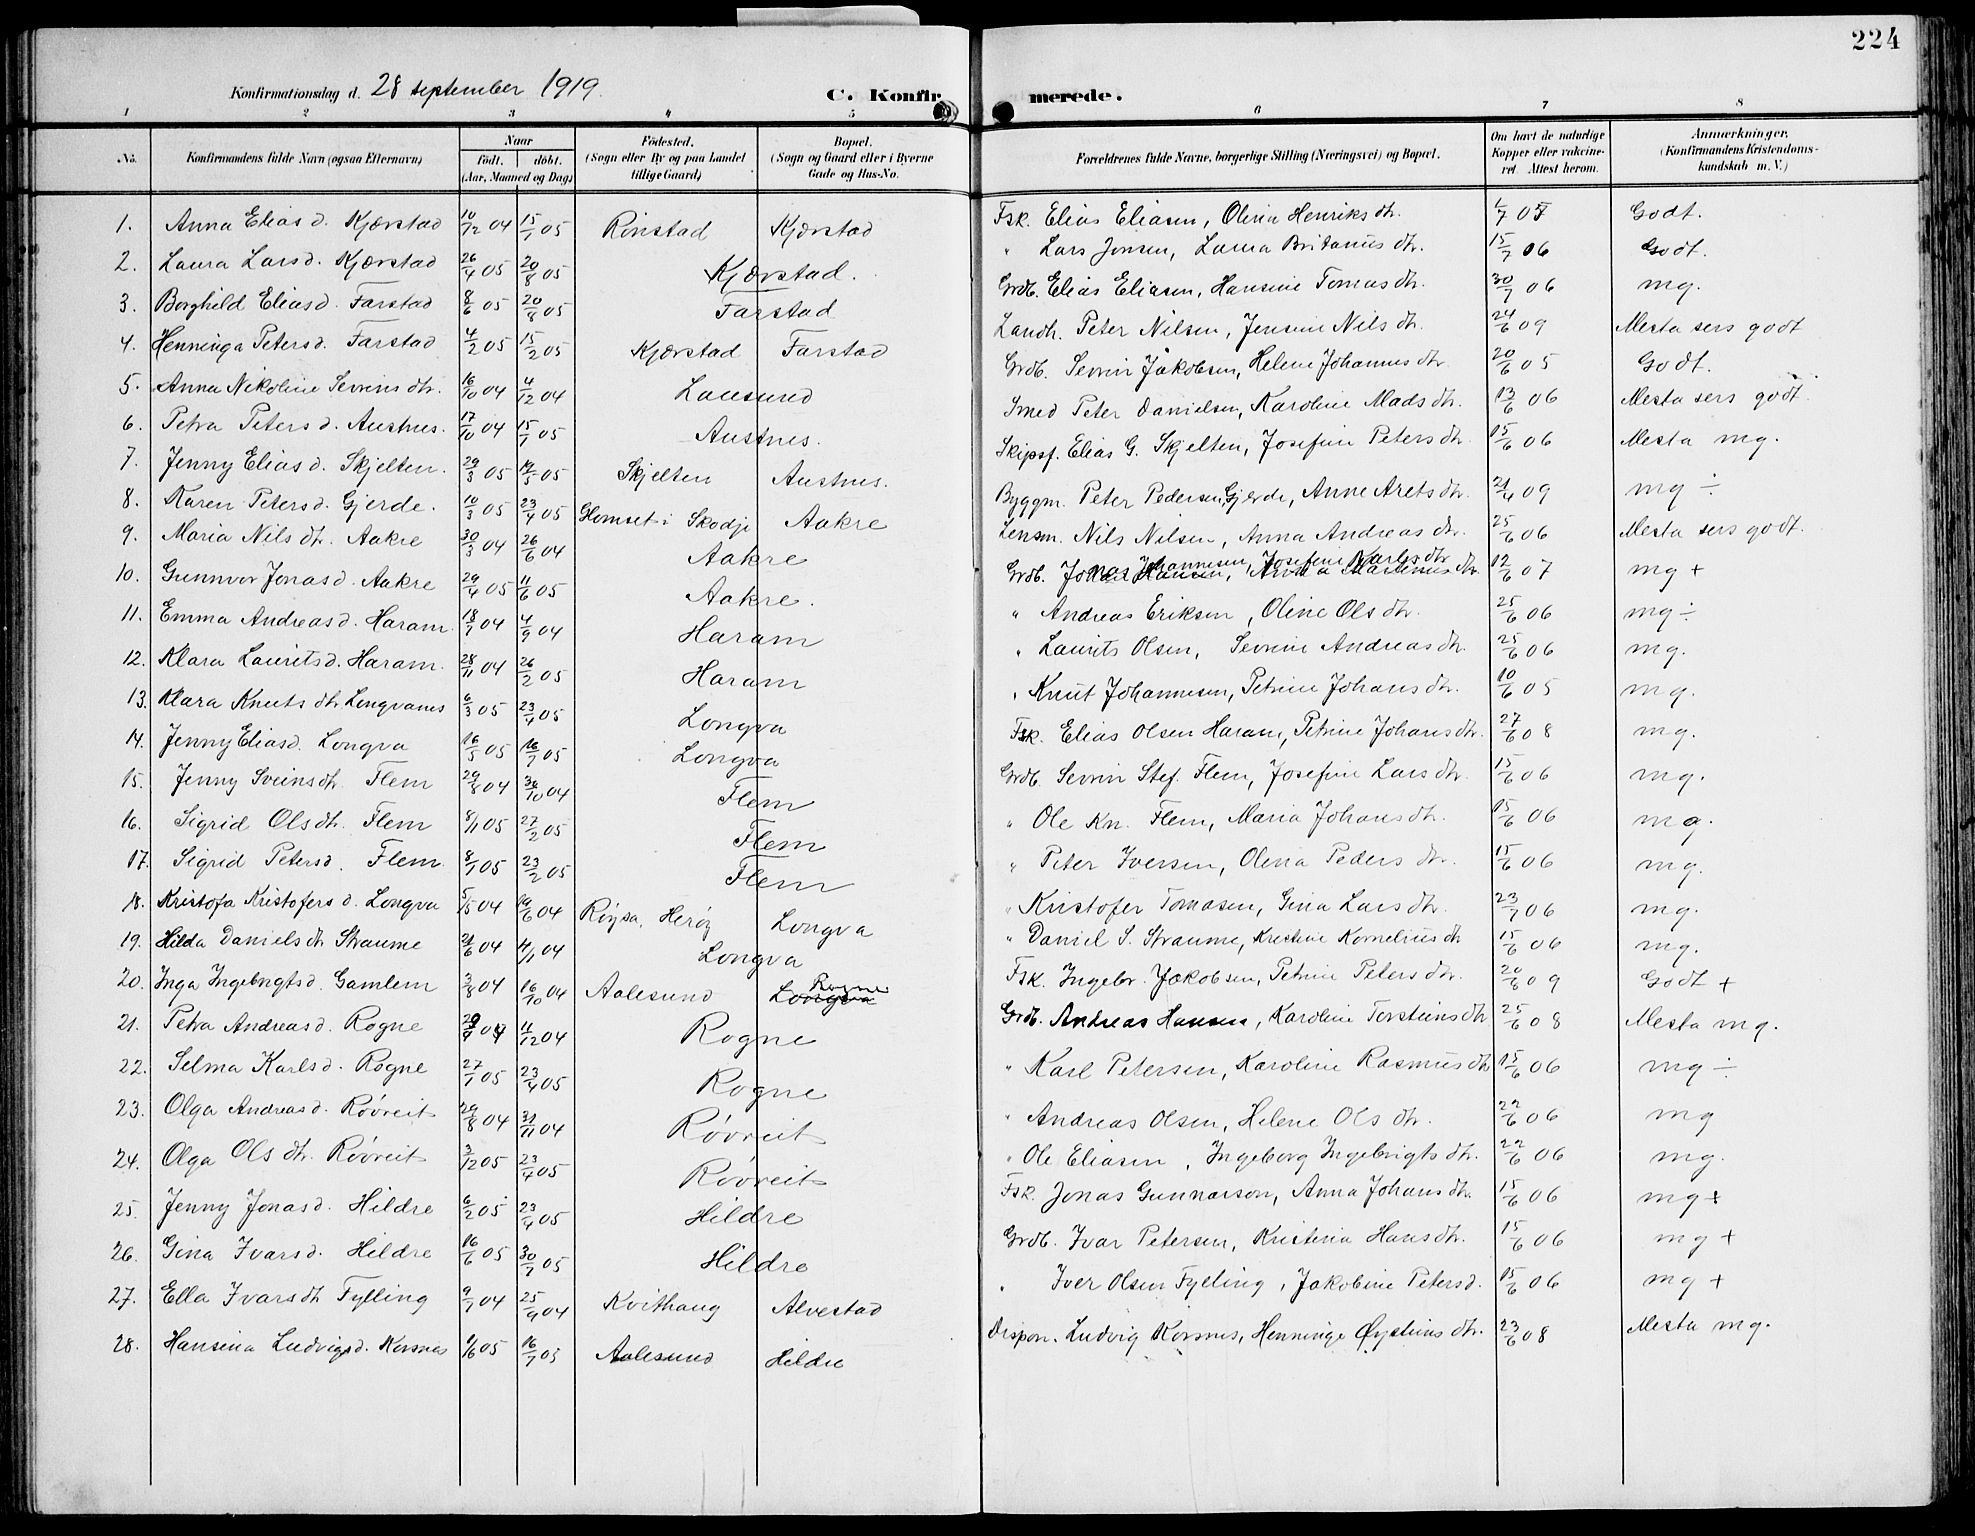 224
Konfirmationsdag d. 28 september 1919. C. Konfirmerede.
1 2 3 4 5 6 7 8
No. Konfirmandens fulde Navn (ogsaa Efternavn) Naar født. døbt. (Aar, Maaned og Dag) Fødested. (Sogn eller By og paa Landet tillige Gaard) Bopæl. (Sogn og Gaard eller i Byerne Gade og Hus-No. Forældrenes fulde Navne, borgerlige Stilling (Næringsvei) og Bopæl. Om havt de naturlige Kopper eller vakcineret. Attest herom. Anmærkninger. (Konfirmandens Kristendomskundskab m. V.)
1. Anna Eliasd. Kjærstad 10/12 04 15/1 05 Rinstad Kjærstad Fsk. Elias Eliasen, Olina Henriksdtr. 1/7 05 Godt.
2. Laura Larsd. Kjærstad 26/4 05 20/8 05 Kjærstad. " Lars Jonsen, Laura Britanusdtr. 15/7 06 Godt.
3. Borghild Eliasd. Farstad 8/6 05 20/8 05 Farstad Grdb. Elias Eliasen, Hansine Tomasdtr. 30/7 06 mg.
4. Henninga Petersd. Farstad 4/2 05 15/2 05 Kjærstad Farstad Landh. Peter Nilsen, Jensine Nilsdtr. 24/6 09 Mesta sers godt
5. Anna Nikoline Sevrinsdtr. 16/10 04 4/12 04 Lausund Grdb. Sevrin Jakobsen, Helene Johannesdtr. 20/6 05 Godt.
6. Petra Petersd. Austnes. 17/10 04 15/1 05 Austnes. Smed Peter Danielsen, Karoline Madsdtr. 13/6 06 Mesta sers godt.
7. Jenny Eliasd. Skjelten. 29/3 05 14/5 05 Skjelten Austnes. Skipsf. Elias G. Skjelten, Josefine Petersdtr. 15/6 06 Mesta mg.
8. Karen Petersd. Gjerde. 10/3 05 23/4 05 Glomset i Skodje Aakre Byggm. Peter Pedersen Gjerde, Anne Aretsdtr. 21/4 09 mg ÷
9. Maria Nilsdtr. Aakre 30/3 04 26/6 04 Aakre Lensm. Nils Nilsen, Anna Andreasdtr. 25/6 06 Mesta sers godt.
10. Gunnvor Jonasd. Aakre 29/4 05 11/6 05 Aakre. Grdb. Jonas Johannesen, Josefine Karlsdtr. 12/6 07 mg +
11. Emma Andreasd. Haram 18/7 04 4/9 04 Haram " Andreas Eriksen, Oline Olsdtr. 25/6 06 mg ÷
12. Klara Lauritsd. Haram. 28/11 04 26/2 05 Haram " Laurits Olsen, Sevrine Andreasdtr. 25/6 06 mg.
13. Klara Knutsdtr. Longvanes 6/3 05 23/4 05 Longva " Knut Johannesen, Petrine Johansdtr. 10/6 05 mg.
14. Jenny Eliasd. Longva 16/5 05 16/7 05 Longva Fsk. Elias Olsen Haram, Petrine Johansdtr. 27/6 08 mg.
15. Jenny Sveinsdtr. Flem 29/8 04 30/10 04 Flem Grdb. Sevrin Stef. Flem, Josefine Larsdtr. 15/6 06 mg.
16. Sigrid Olsdtr. Flem 8/1 05 27/2 05 Flem " Ole Kn. Flem, Maria Johansdtr. 15/6 06 mg.
17. Sigrid Petersd. Flem. 8/1 05 23/2 05 Flem " Peter Iversen, Olina Pedersdtr. 15/6 06 mg.
18. Kristofa Kristofersd. Longva 5/15 04 19/6 04 Røysa, Herøy Longva " Kristofer Tomasen, Gina Larsdtr. 23/7 06 mg.
19. Hilda Danielsdtr. Straume 21/6 04 04 Longva " Daniel S. Straume, Kristine Korneliusdtr 15/6 06 mg.
20. Inga Ingebrigtsd. Gamlem 3/8 04 16/10 04 Aalesund Longva Rogne Fsk. Ingebr. Jakobsen, Petrine Petersdtr. 20/6 09 Godt +
21. Petra Andreasd. Rogne 29/9 04 11/12 04 Rogne Grdb. Andreas Hansen, Karoline Torsteinsdtr 25/6 08 Mesta mg.
22. Selma Karlsd. Rogne 27/1 05 23/4 05 Rogne " Karl Petersen, Karoline Rasmusdtr 15/6 06 mg ÷
23. Olga Andreasd. Røvreit 29/8 04 04 Røvreit " Andreas Olsen, Helene Olsdtr. 22/6 06 mg
24. Olga Olsdtr. Røvreit 3/12 05 23/4 05 Røvreit " Ole Eliasen, Ingeborg Ingebrigtsdtr. 22/6 06 mg.
25. Jenny Jonasd. Hildre 6/2 05 23/4 05 Hildre Fsk. Jonas Gunnarson, Anna Johansdtr. 15/6 06 mg +
26. Gina Ivarsd. Hildre 16/6 05 30/7 05 Hildre Grdb. Ivar Petersen, Kristina Hansdtr. 15/6 06 mg +
27. Ella Ivarsdtr Fylling 9/7 04 25/9 04 Kvithaug Alvestad " Iver Olsen Fylling, Jakobine Petersd. 15/6 06 mg +
28. Hansina Ludvigsd. Korsnes 1/6 05 16/7 05 Aalesund Hildre Dispon. Ludvig Korsnes, Henninge Øysteinsdtr. 23/6 08 Mesta mg.